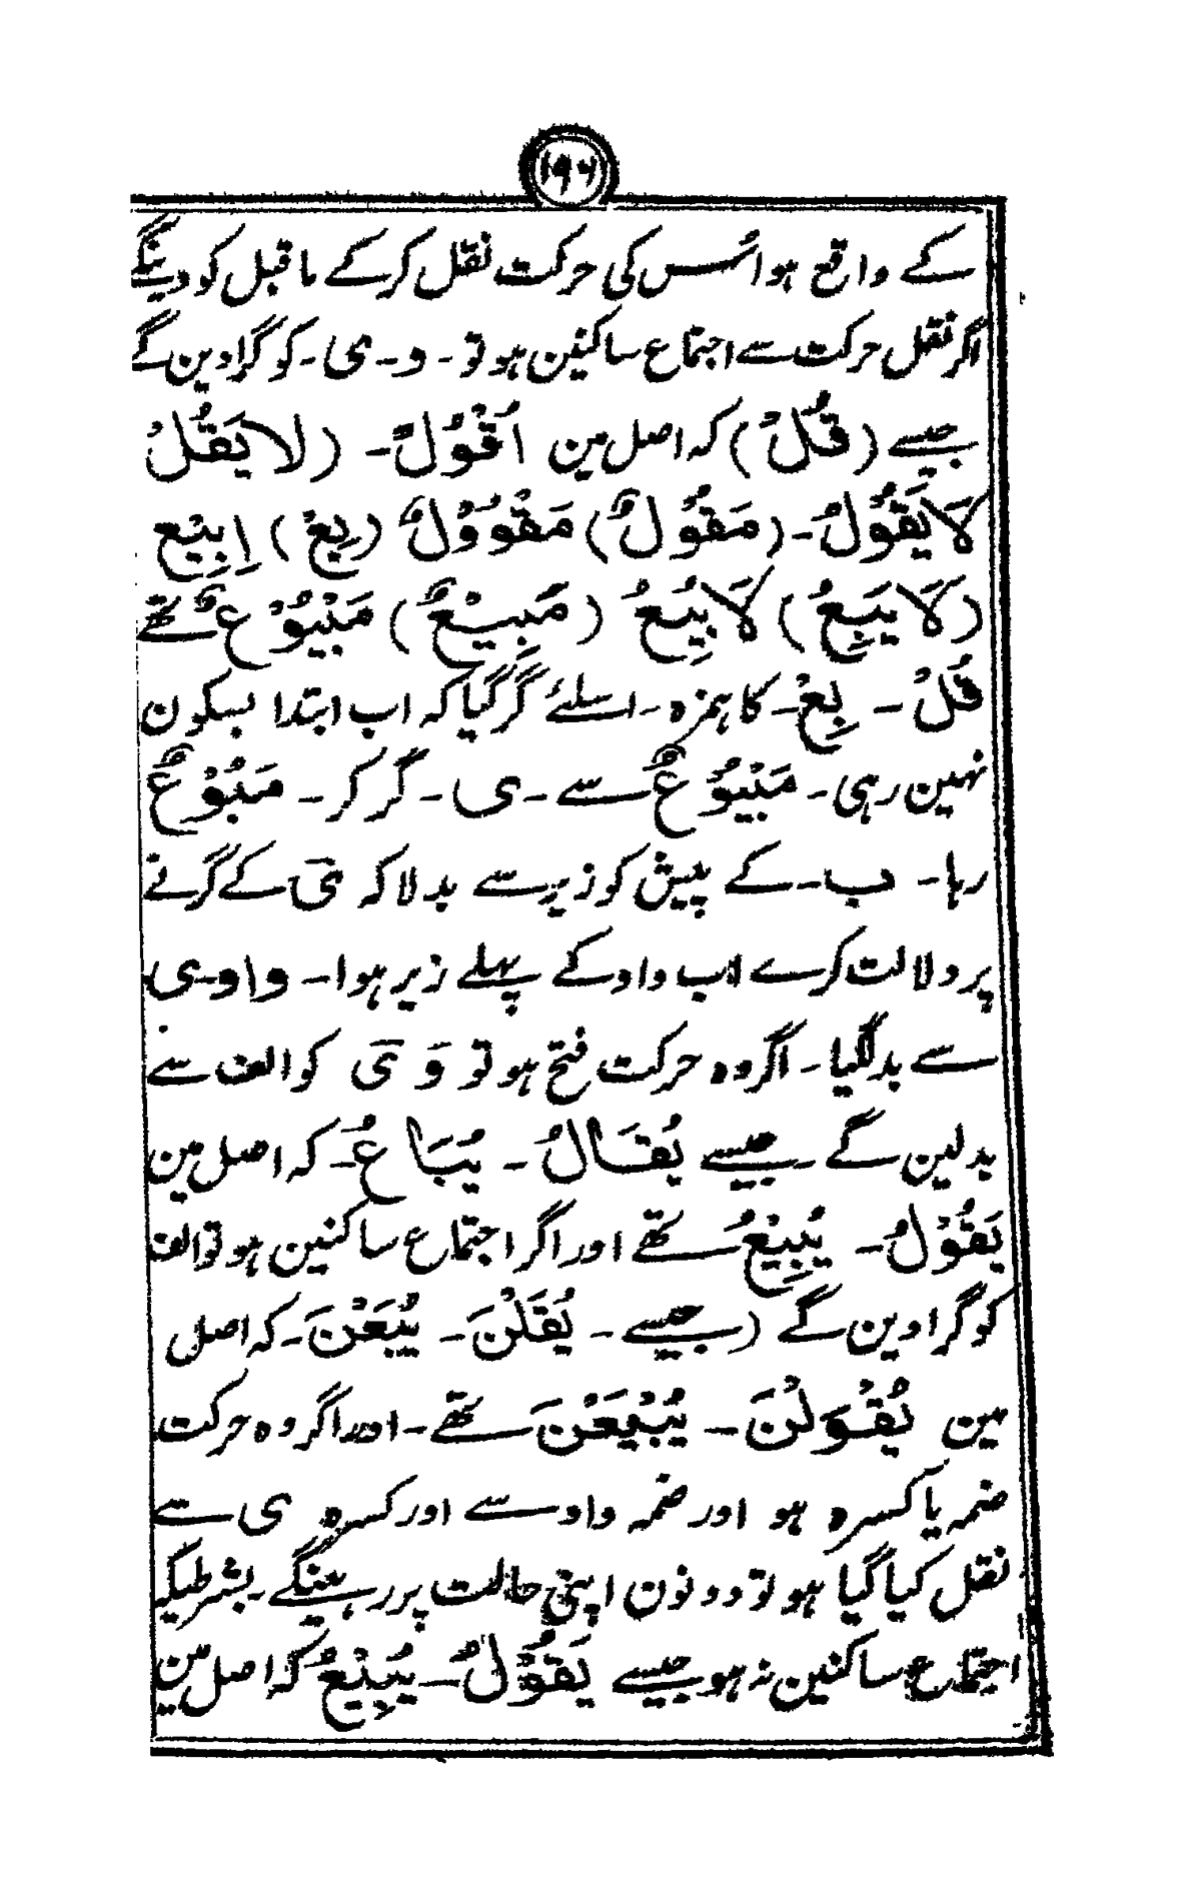 ۱۹۶
کے واقع ہو اُس کی حرکت نقل کرکے ما قبل کو دینگے
اگر نقل حرکت سے اجتماع ساکنین ہو تو ۔ و ۔ ی ۔ کو گرا دین گے
جیسے (قُلْ) کہ اصل مین اُقْوُلْ ۔ (لا یَقُلْ
لَا یَقْوُلْ ۔ (مَقُوْلٌ) مَقْوُوْلٌ (بِعْ) اِبْیِعْ
(لَا یَبِعْ) لَا یَبْیِعْ (مَبِیْعٌ) مَبْیُوْعٌ تھے
قُلْ ۔ بِعْ ۔ کا ہمزہ ۔ اسلئے گر گیا کہ اب ابتدا بسکون
نہین رہی ۔ مَبْیُوْعٌ سے ۔ ی ۔ گر کر ۔ مَبُوْعٌ
رہا ۔ ب ۔ کے پیش کو زیر سے بدلا کہ یٓ کے گرنے
پر دلالت کرے اب واو کے پہلے زیر ہوا ۔ واو ۔ ی
سے بدلگیا ۔ اگر وہ حرکت فتح ہو تو وَ یٓ کو الف سے
بدلین گے ۔ جیسے یُقَالُ ۔ یُبَاعُ ۔ کہ اصل مین
یَقْوُلُ ۔ یُبْیِعُ تھے اور اگر اجتماع ساکنین ہو تو الف
کو گرا دین گے (جیسے ۔ یُقَلْنَ ۔ یُبَعْنَ ۔ کہ اصل
مین یُقْوَلْنَ ۔ یُبْیَعْنَ تھے ۔ اور اگر وہ حرکت
ضمہ یا کسرہ ہو اور ضمہ واو سے اور کسرہ ی سے
نقل کیا گیا ہو تو دونون اپنی حالت پر رہینگے ۔ بشرطیکہ
اجتماع ساکنین نہ ہو جیسے یَقُوْلُ ۔ یَبِیْعُ کہ اصل مین